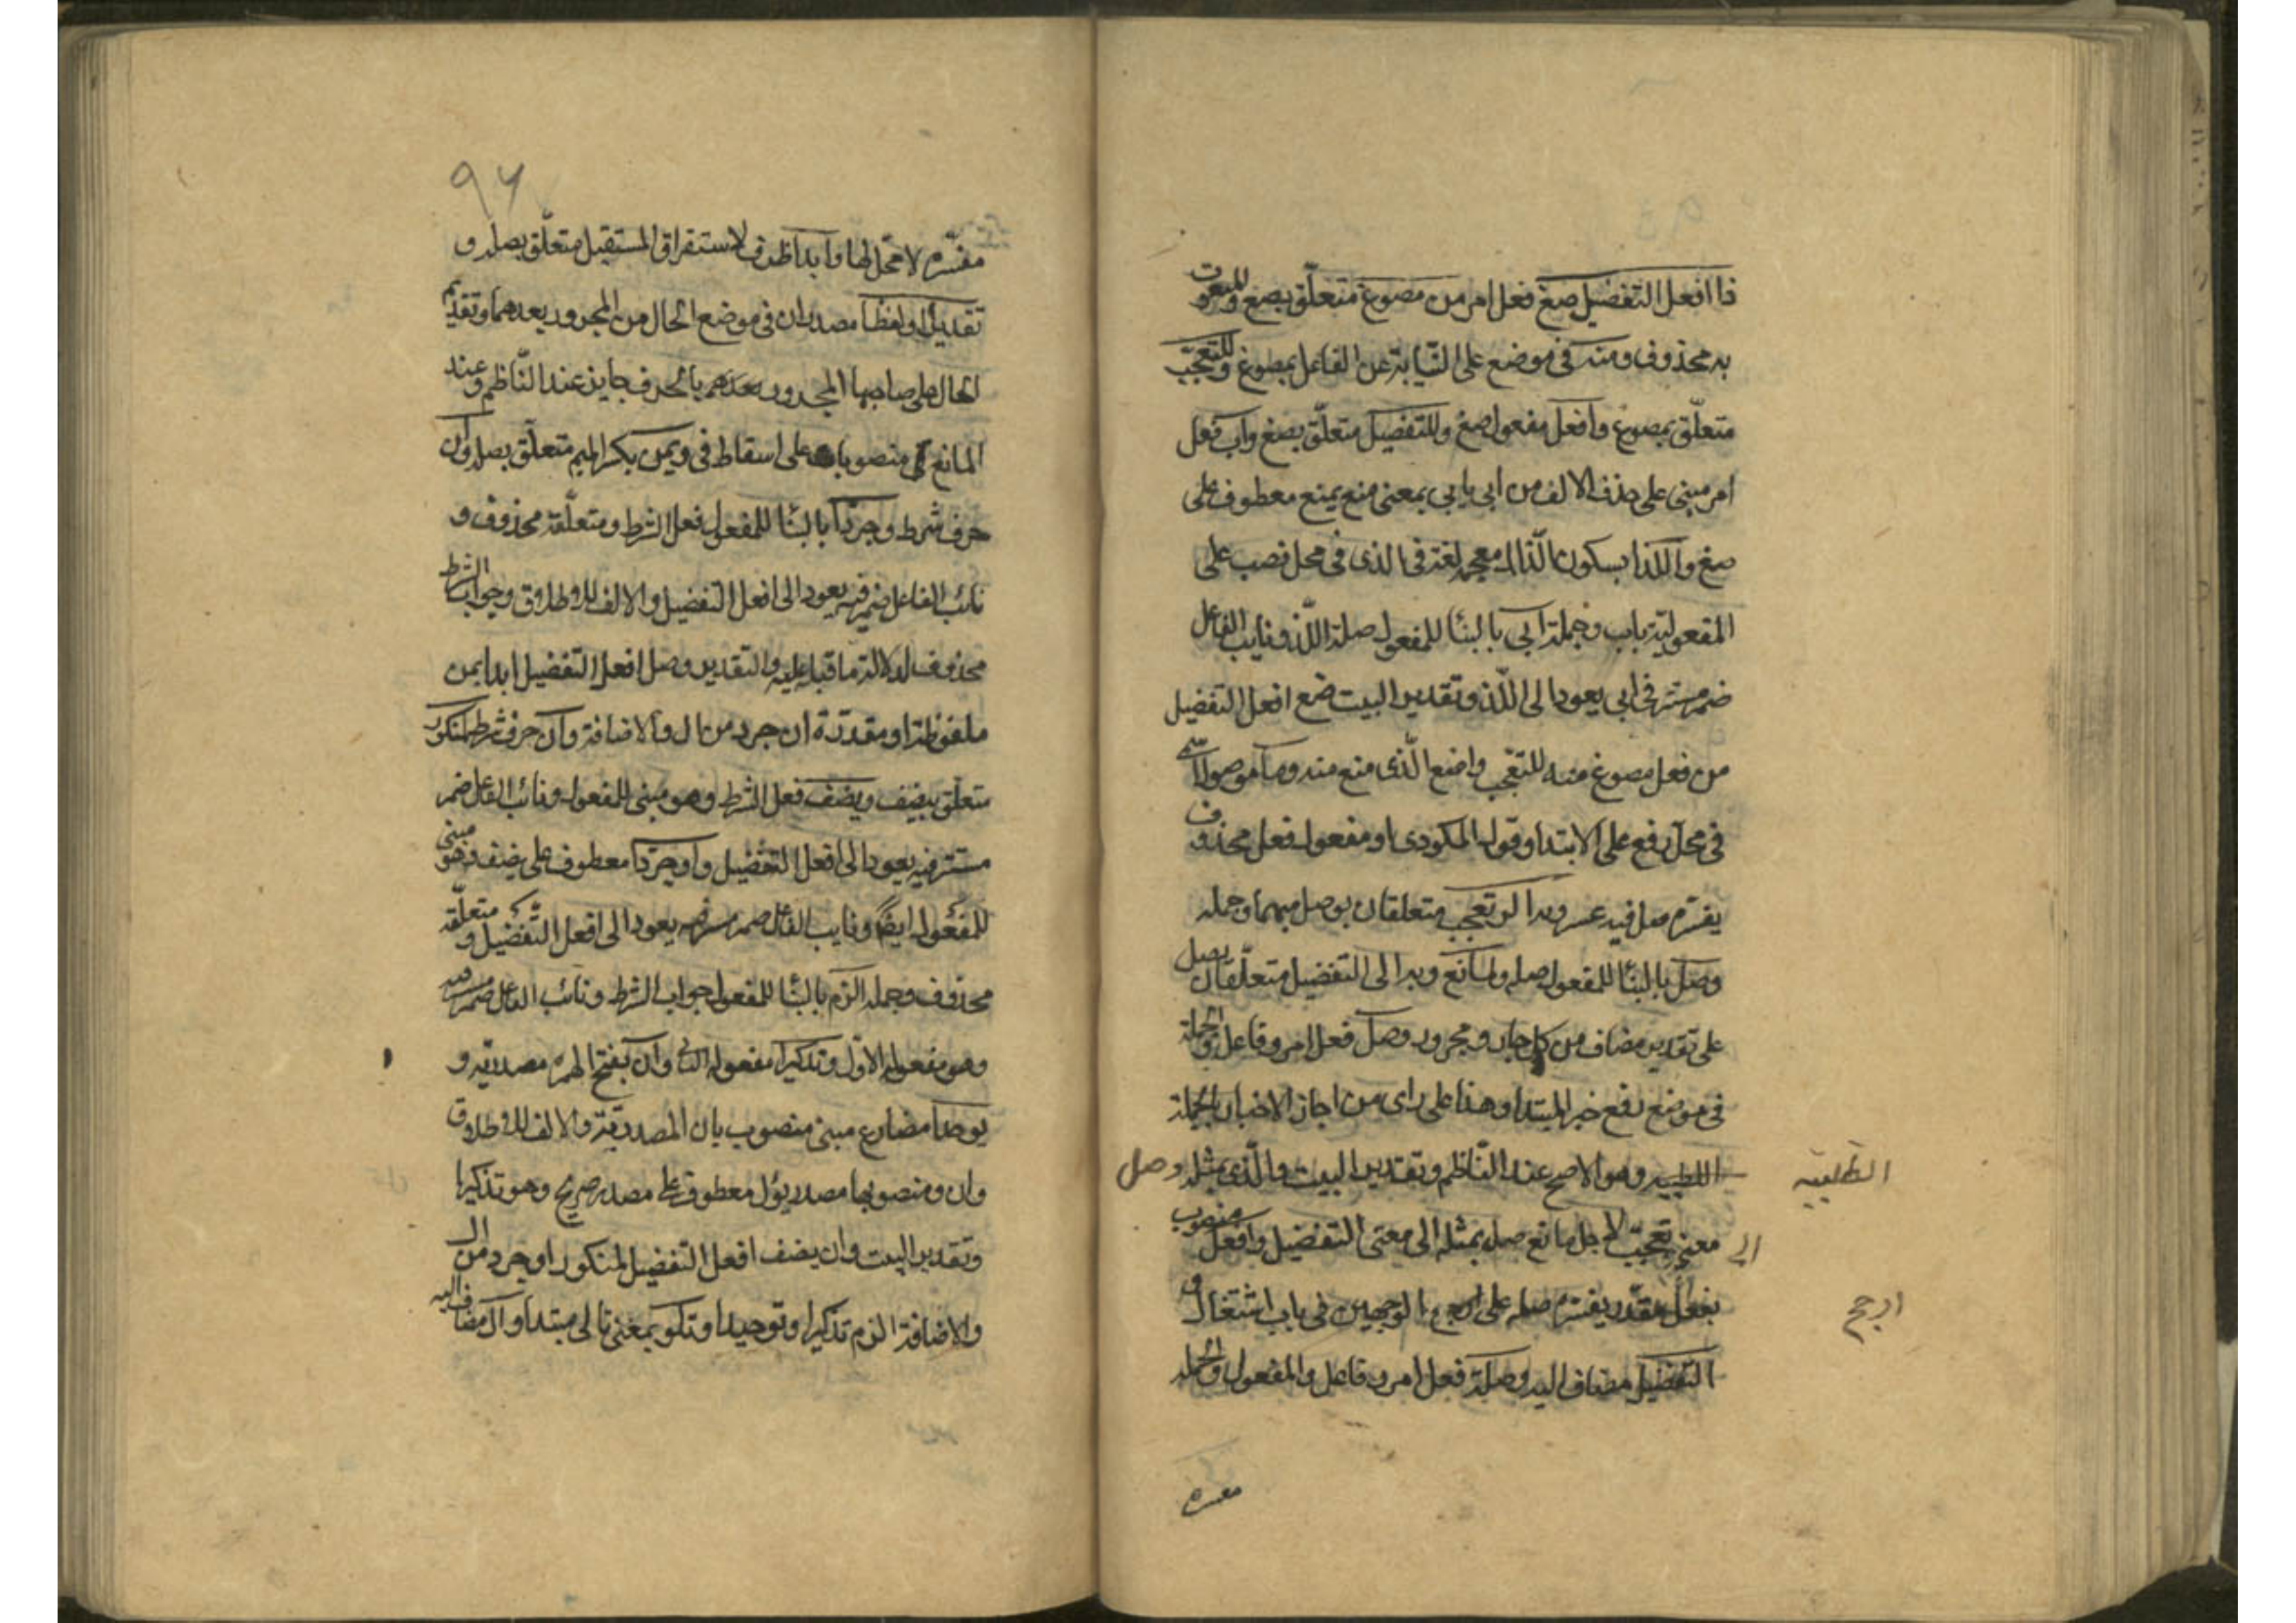 ذا افعل التفضيل صغ فعل امر من مصوغ متعلّق بصغ والمنعوت
به محذوف ومنه فى موضع على النّيابة عن الفاعل بمصوغ وللتعجّب
متعلّق بمصوغ وافعل مفعول صغ وللتفضيل متعلّق بصغ وأب فعل
امر مبنى على حذف الالف من ابى يابى بمعنى منع يمنع معطوف على
صغ واللذا بسكون الذال معجمه لغة فى الذى فى محل نصب على
المفعوليّة باب وجملة ابى بالبنا للمفعول صلة اللّذ ونايب الفاعل
ضمير مستتر فى ابى يعود الى اللّذ وتقدير البيت ضع افعل التفضيل
من فعل مصوغ منه للتعجّب وامنع الّذى منع منه وما موصول اسمى
فى محل رفع على الابتدا وقول المكودى او مفعول فعل محذوف
يفسّره صل فيه عسر وبه الى تعجب متعلقان بوصل مبهما وجمله
وصل بالبنا للمفعول صله ولمانع وبه الى التفضيل متعلّقان بصل
على تقدير مضاف من كل جار ومجرور وصل فعل امر وفاعل والجملة
فى موضع رفع خبر المبتدا وهذا على راى من اجاز الاخبار بالجملة
الطلبيه وهو الاصح عند النّاظم وتقدير البيت والّذى بمثله وصل
الطلبيه
معنى تعجّب لاجل مانع صل بمثله الى معنى التفضيل وافعل منصوب
الى
بفعل مقدّر يفسّره صله على ارجح الوجهين فى باب اشتغال و
ارجح
التفضيل مضاف اليه وصله فعل امر وفاعل والمفعول والجمله
مفسره
٩٦
مفسّره لا محّل لها وابدا ظرف لاستغراق المستقبل متعلّق بصله و
تقديرًا او لفظا مصدران فى موضع الحال من المجرور بعدهما وتقديم
الحال على صاحبها المجرور بالحرف جايز عند النّاظم وعند
المانع منصوبان على اسقاط فى وبمن بكسر الميم متعلّق بصله وان
حرف شرط وجرّدا بالبنا للمفعول فعل الشرط ومتعلّقه محذوف و
نائب الفاعل ضمير فيه يعود الى افعل التفضيل والالف للاطلاق وجواب الشرط
محذوف لدلالة ما قبله عليه والتقدير وصل افعل التفضيل ابدا بمن
ملفوظة او مقدّرة ان جرد من ال والاضافة وان حرف شرط لمنكور
متعلّق بيضف ويضف فعل الشرط وهو مبنى للمفعول ونائب الفاعل ضمير
مستتر فيه يعود الى افعل التفضيل واو جرّدا معطوف على يضف وهو مبنى
للمفعول ايضًا ونايب الفاعل ضمير مستتر فيه يعود الى افعل التّفضيل ومتعلّقه
محذوف وجمله الزم بالبنا للمفعول جواب الشرط ونائب الفاعل ضمير مستتر فيه
وهو مفعوله الاوّل وتذكيرا مفعوله الثانى وان بفتح الهمزه مصدريّه و
يوحدا مضارع مبنى منصوب بان المصدريّة والالف للاطلاق
وان ومنصوبها مصدر يؤل معطوف على مصدر صريح وهو تذكيرا
وتقدير البيت وان يضف افعل التفضيل لمنكور او جرد من ال
والاضافة الزم تذكيرا وتوحيدا وتلو بمعنى تالى مبتدا وال مضاف اليه